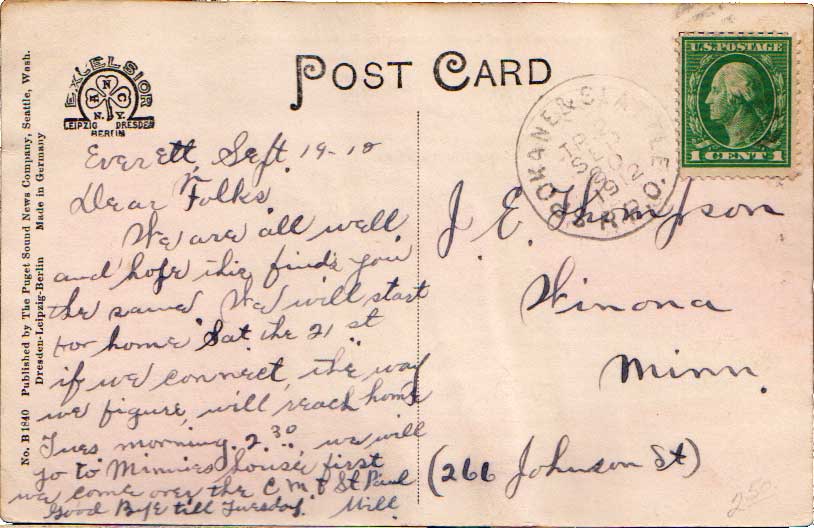 POST CARD
EXCELSIOR
N.Y.
LEIPZIG DRESDEN
BERLIN
No. B 1840 Published by The Puget Sound News Company, Seattle, Wash.
Dresden-Leipzig-Berlin Made in Germany
U.S. POSTAGE
1 CENT 1
SPOKANE & SEATTLE
R.P.O.
Everett, Sept. 19-10
Dear Folks
We are all well
and hope this finds you
the same We will start
for home Sat the 21 st
if we connect, the way
we figure, will reach home
Tues. morning 2.30, we will
go to Minnies house first
we come over the C M & St Paul
Good Bye till Tuesday. Will
J. E. Thompson
Winona
Minn.
(266 Johnson St)
2.50